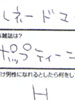 ルネードコ
雑誌は？
ポップティーン
け男性になれるとしたら何をし
H